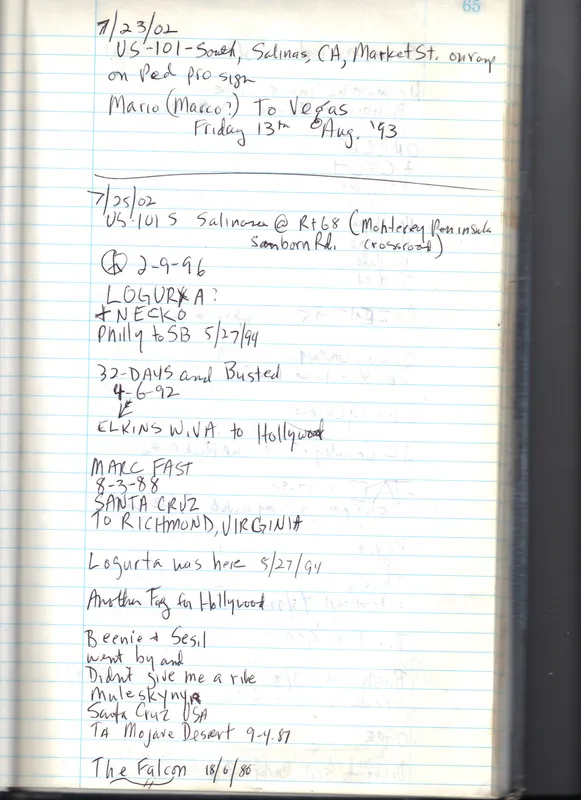 65
7/23/02
US-101-South, Salinas, CA, Market St. onramp
on Ped pro sign
Mario (Marco?) To Vegas
Friday 13th Aug. '93
7/25/02
US-101 S Salinas @ Rt 68 (Monterey Peninsula
Sanborn Rd. crossroad)
2-9-96
LOGURXA?
+ NECKO
Philly to SB 5/27/94
32-DAYS and Busted
4-6-92
ELKINS W.VA to Hollywood
MARC FAST
8-3-88
SANTA CRUZ
TO RICHMOND, VIRGINIA
Logurta was here 5/27/94
Another Fag for Hollywood
Beenie + Sesil
went by and
Didn't give me a ride
Muleskynyr
Santa Cruz USA
TA Mojave Desert 9-4-87
The Falcon 18/6/86